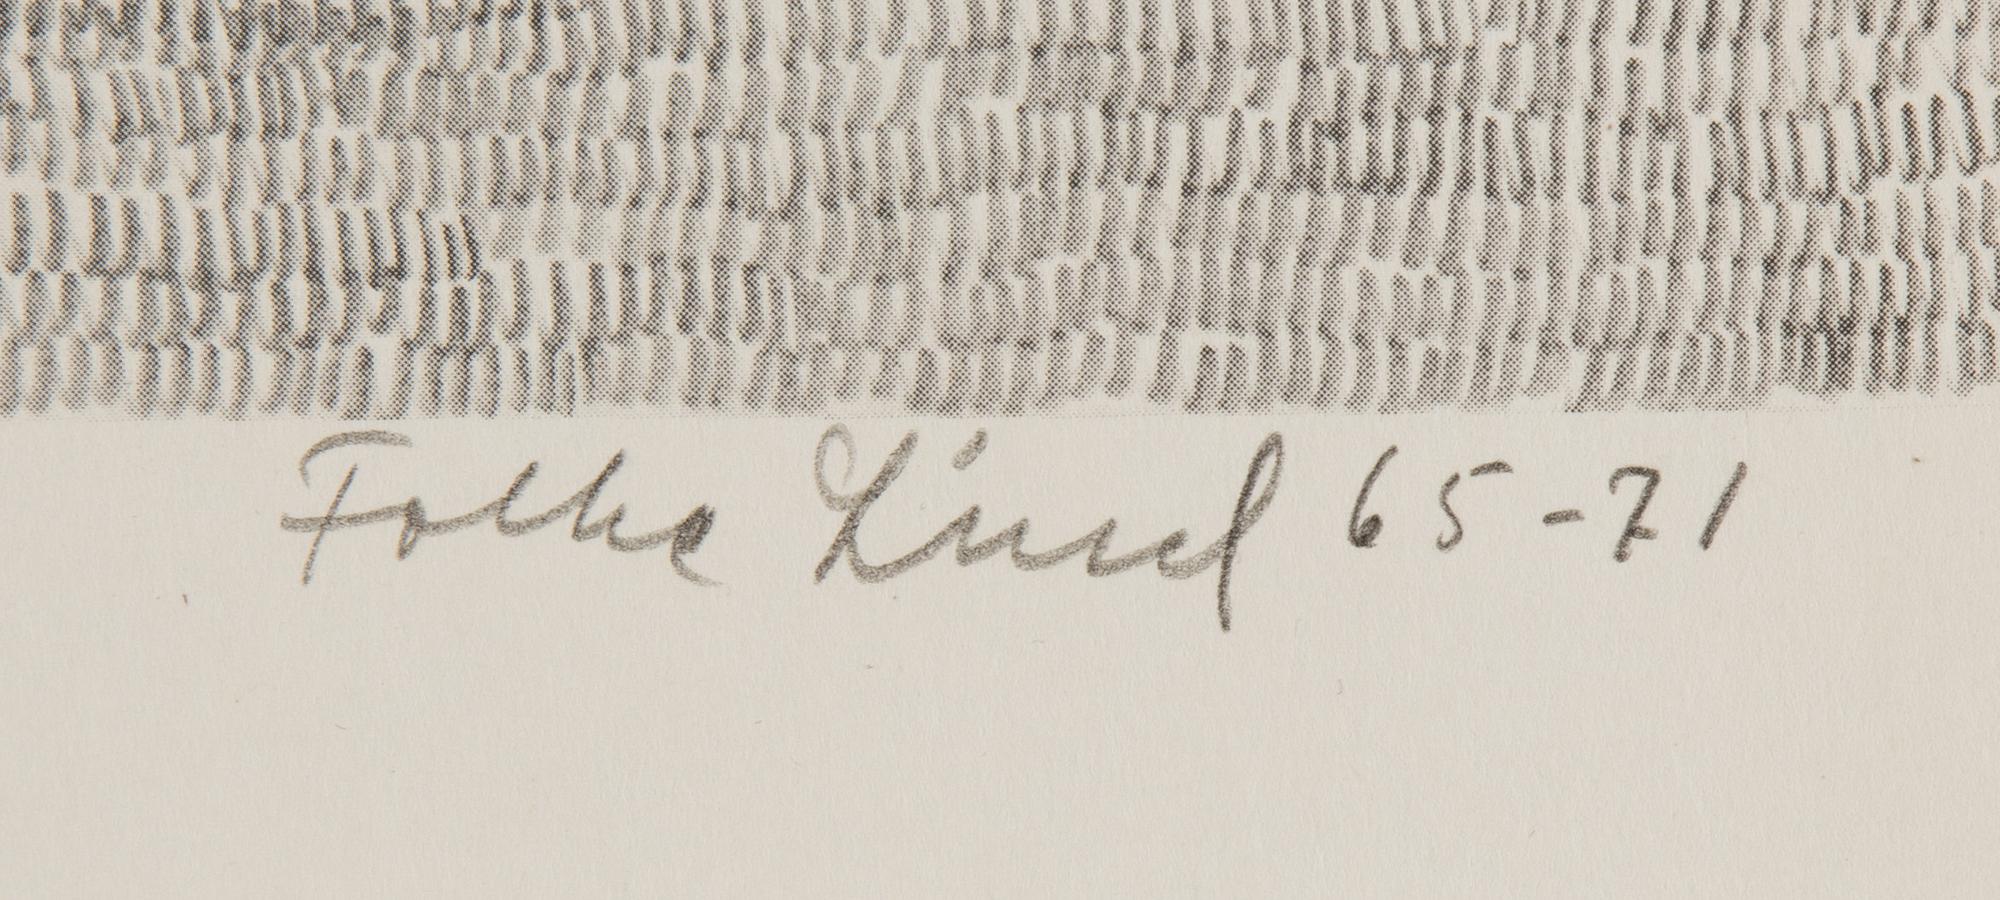 Folke Lind 65-71